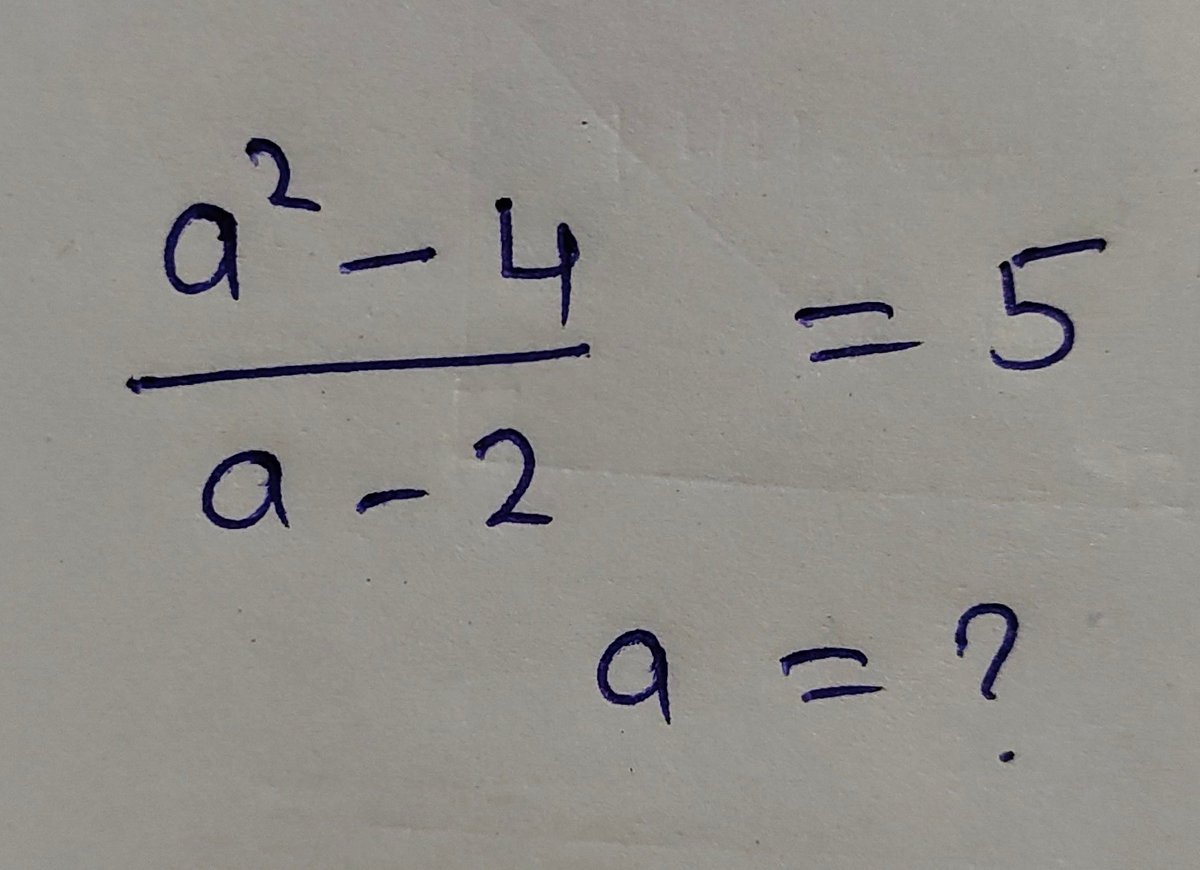 a² - 4
a - 2
= 5
a = ?